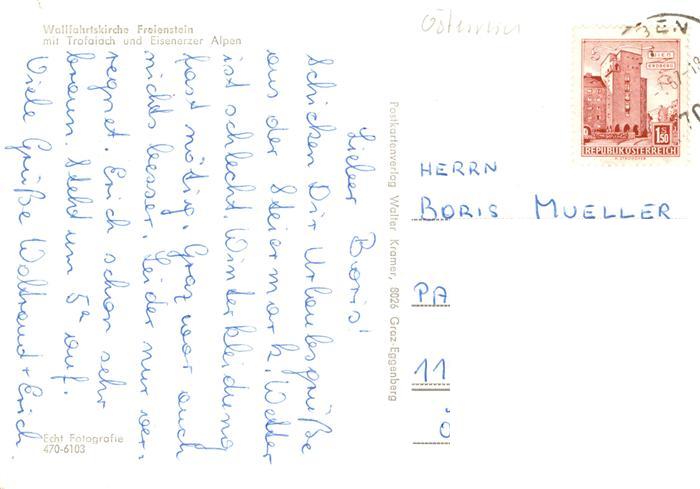 Wallfahrtskirche Freienstein
mit Trofaiach und Eisenerzer Alpen
Lieber Boris!
Schicken Dir Urlaubsgrüße
aus der Steiermark. Wetter
ist schlecht. Winterkleidung
fast nötig. Graz war auch
nichts besser. Leider nur ver-
regnet. Erich schon sehr
braun. Steht um 5ª auf.
Viele Grüße Waltraud + Erich.
Echt Fotografie
470-6103
Postkartenverlag Walter Kramer, 8026 Graz-Eggenberg
Österreich
WIEN
ERDBERG
1.50
REPUBLIK ÖSTERREICH
HERRN
BORIS MUELLER
PA
11
Ö